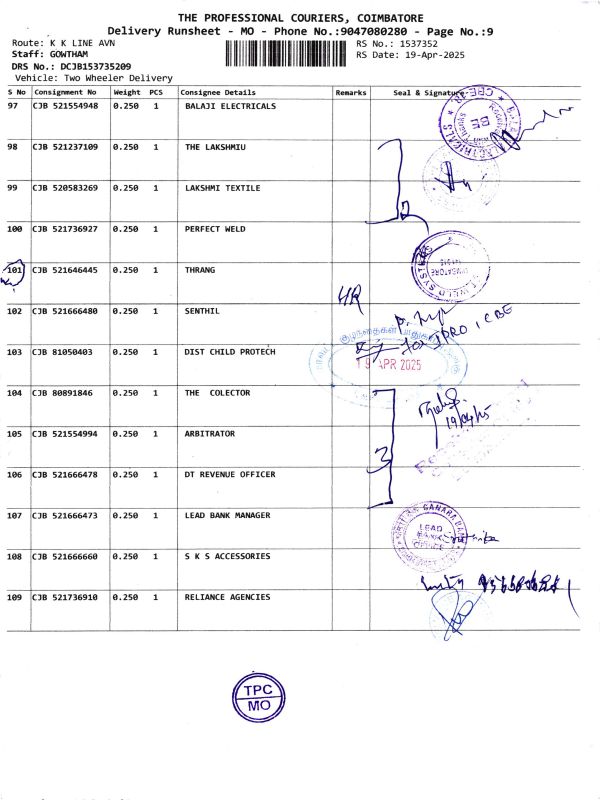 THE PROFESSIONAL COURIERS, COIMBATORE
Delivery Runsheet - MO - Phone No.:9047080280 - Page No.:9
Route: K K LINE AVN
RS No.: 1537352
Staff: GOWTHAM
RS Date: 19-Apr-2025
DRS No.: DCJB153735209
Vehicle: Two Wheeler Delivery
S No Consignment No Weight PCS Consignee Details Remarks Seal & Signature
97 CJB 521554948 0.250 1 BALAJI ELECTRICALS
98 CJB 521237109 0.250 1 THE LAKSHMIU
99 CJB 520583269 0.250 1 LAKSHMI TEXTILE
2
100 CJB 521736927 0.250 1 PERFECT WELD
101 CJB 521646445 0.250 1 THRANG
102 CJB 521666480 0.250 1 SENTHIL
for IPRO, CBE
103 CJB 81050403 0.250 1 DIST CHILD PROTECH
19 APR 2025
104 CJB 80891846 0.250 1 THE COLECTOR
19/04/25
105 CJB 521554994 0.250 1 ARBITRATOR
3
106 CJB 521666478 0.250 1 DT REVENUE OFFICER
107 CJB 521666473 0.250 1 LEAD BANK MANAGER
CANARA BANK
LEAD
BANK
OFFICE
108 CJB 521666660 0.250 1 S K S ACCESSORIES
109 CJB 521736910 0.250 1 RELIANCE AGENCIES
TPC
MO